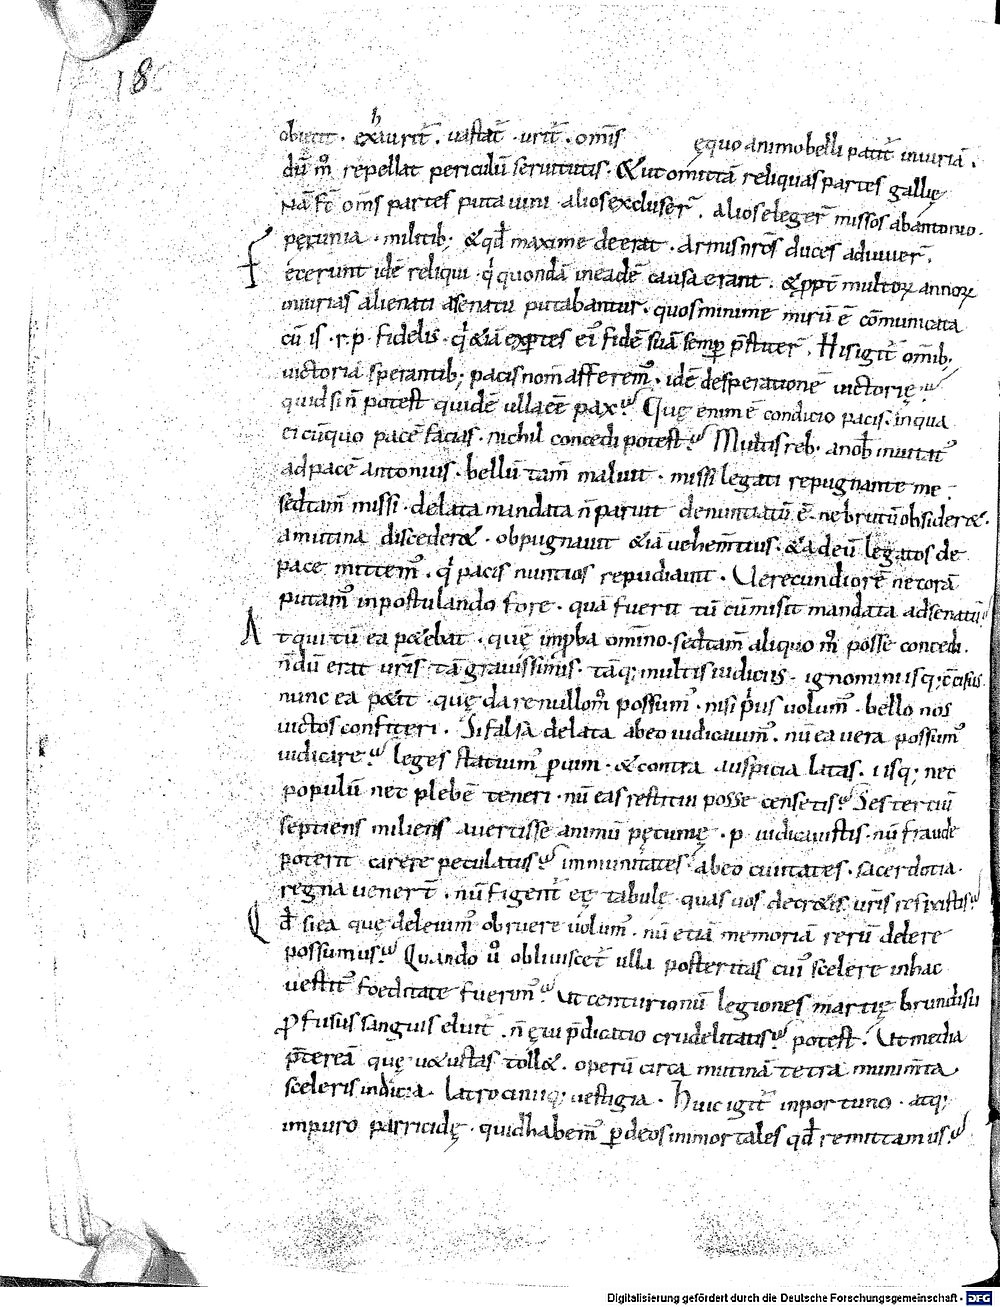 18
obiecit · exhaurit̄ · uastat̄ · urit̄ · om̄is ęquo animo belli patit̄ iniuriā ·
dū m̊ repellat periculū seruitutis · & ut omittā reliquas partes gallię
Nā f̄t om̄s partes puta uini alios excluser̄ · alios eleger̄ missos ab antonio ·
pęcunia · militib; & qđ maxime deerat · armis nr̄os duces adiuuer̄ ·
fecerunt idē reliqui · q̇ quondā in eadē causa erant · & ꝓpt̄ multoꝝ annoꝝ
iniurias alienati a senatu putabantur · quos minime mirū ē cōmunicata
cū is · r · p · fidelis · q̇ & iā exꝑtes ei᷒ fidē suā semꝑ p̄stiter̄ · His igit̄ omib;
uictoriā sperantib; pacis nom̄ afferem᷒ · idē desperationē uictorię
quid si n̄ potest quidē ulla eē pax? Quę enim ē condicio pacis · in qua
ei cū quo pacē facias · nichil concedi potest? Multis reb; a nob̄ inuitat᷒
ad pacē antonius · bellū tam̄ maluit · missi legati repugnante me ·
sed tam̄ missi · delata mandata n̄ paruit denuntiatū ē · ne brutū obsider& ·
a mutina disceder& · obpugnauit & iā uehem̄tius · & ad eū legatos de
pace mittem᷒ · q̇ pacis nuntios repudiauit · Uerecundiorē ne corā
putam᷒ in postulando fore · quā fuerit tū cū misit mandata ad senatū
At qui tū ea p&ebat · quę imꝓba omīno · sed tam̄ aliquo m̊ posse concedi ·
n̄dū erat ur̄is tā grauissimis · tāq; multis iudiciis · ignominiisq; c̄cisus
nunc ea p&it · quę dare nullo m̊ possum᷒ · nisi pͥus uolum᷒ · bello nos
uictos confiteri · Si falsa delata ab eo iudicauim᷒ · nū ea uera possum᷒
iudicare? leges statuim᷒ ꝑ uim · & contra auspicia latas · iisq; nec
populū nec plebē teneri · nū eas restitui posse censetis? Sestertiū
septiens miliens auertisse animū pęcunię · p · iudicauistis · nū fraude
poterit carere peculatus? immunitates · ab eo ciuitates · sacerdotia ·
regna uenerr̄t · nū figent̄ eę tabulę · quas uos decr&is uris
Qđ si ea quę deleuim᷒ obruere uolum᷒ · nū etiā memoriā rerū delere
possumus? Quando u̇ obliuiscet̄ ulla posteritas cui᷒ scelere in hac
uestit᷒ foeditate fuerim᷒? Ut centurionū legiones martię brundisii
ꝓfusus sanguis eluit̄ · n̄ elui p̄dicatio crudelitatis? potest · Ut media
p̄tereā quę u&ustas toll& · operū circa mutinā tetra munim̄ta ·
sceleris indicia · latrociniiq; uestigia · Huic igit̄ inportuno · atq;
impuro parricidę · quid habem᷒ ꝑ deos immortales qđ remittamus?
Digitalisierung gefördert durch die Deutsche Forschungsgemeinschaft - DFG